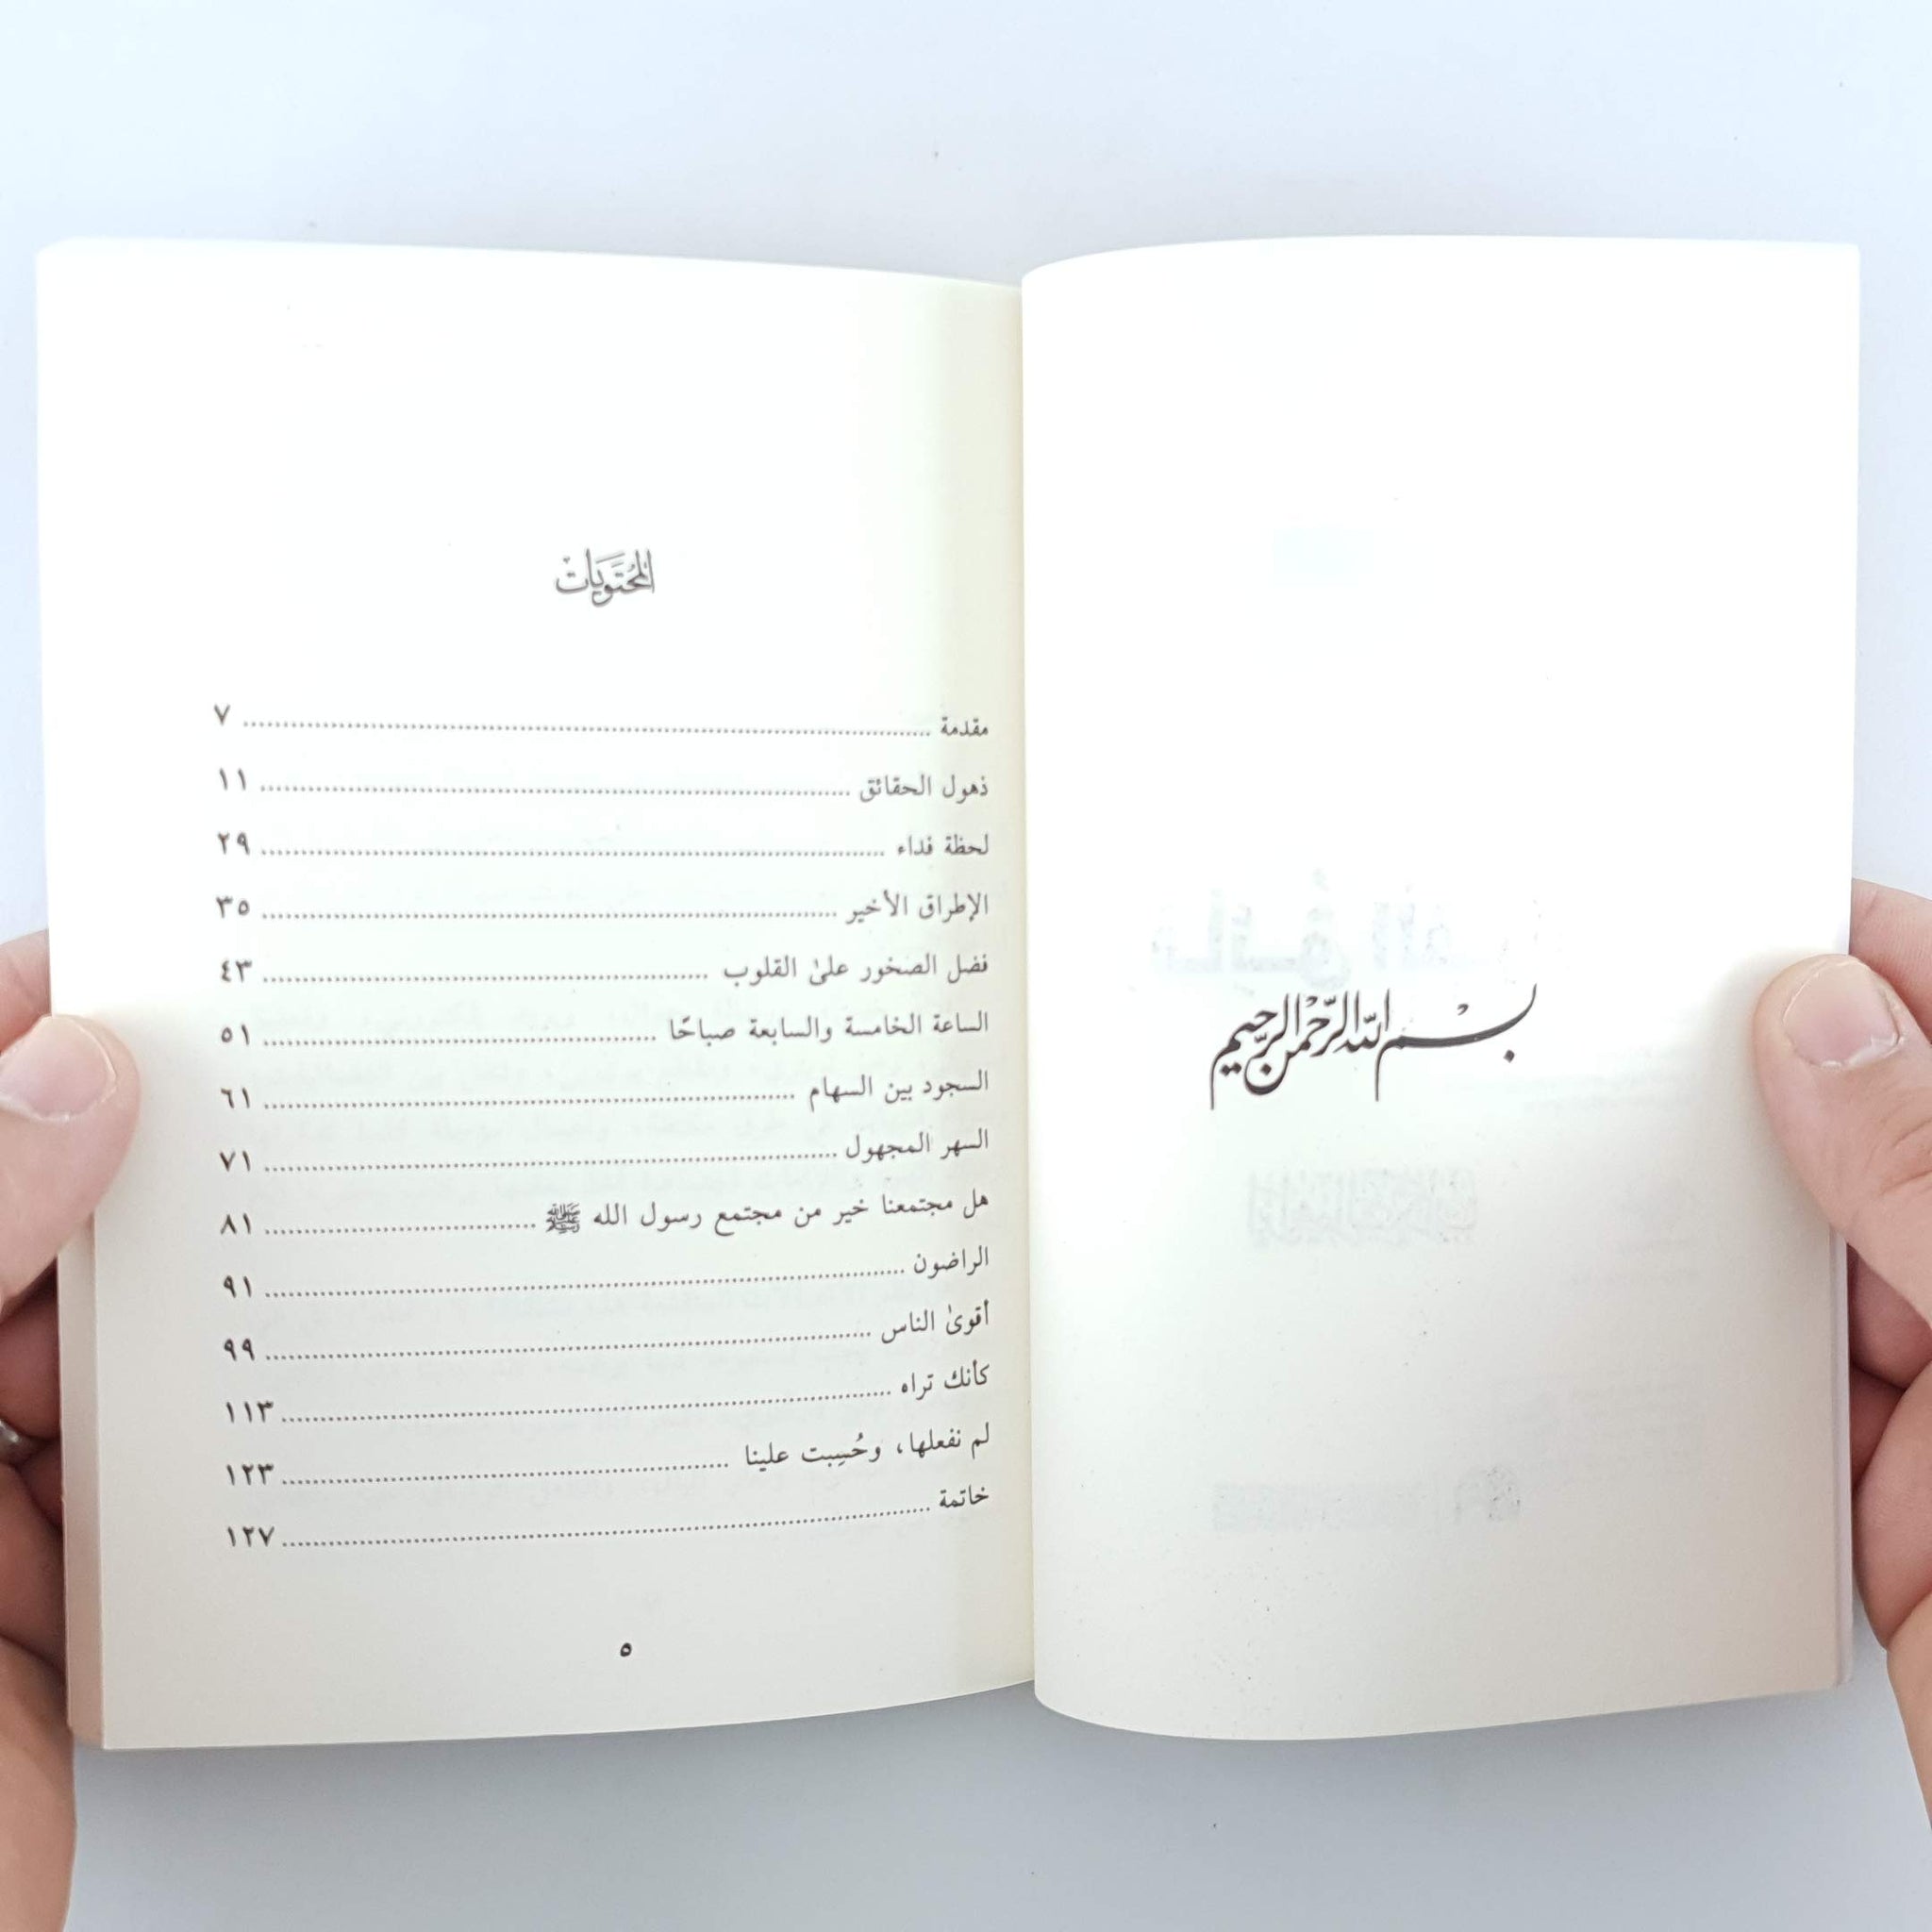 بسم الله الرحمن الرحيم
المُحْتَوَيَات
مقدمة ........ ٧
ذهول الحقائق ........ ١١
لحظة فداء ........ ٢٩
الإطراق الأخير ........ ٣٥
فضل الصخور علىٰ القلوب ........ ٤٣
الساعة الخامسة والسابعة صباحًا ........ ٥١
السجود بين السهام ........ ٦١
السهر المجهول ........ ٧١
هل مجتمعنا خير من مجتمع رسول الله ﷺ ........ ٨١
الراضون ........ ٩١
أقوىٰ الناس ........ ٩٩
كأنك تراه ........ ١١٣
لم نفعلها، وحُسِبت علينا ........ ١٢٣
خاتمة ........ ١٢٧
٥